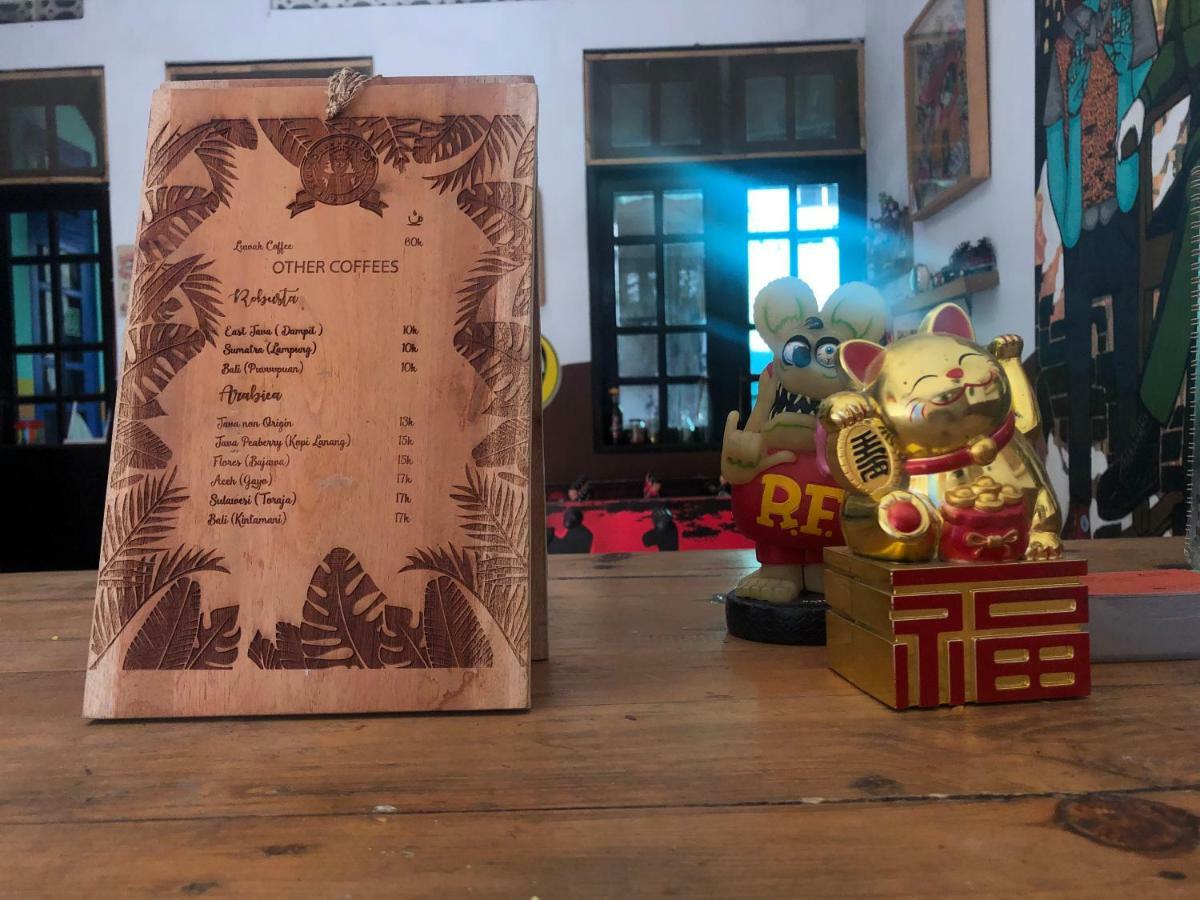 Luwak Coffee 60k
OTHER COFFEES
Robusta
East Java ( Dampit ) 10k
Sumatra (Lampung) 10k
Bali (Pravvpuan) 10k
Arabica
Java non Origin 13k
Java Peaberry (Kopi Lanang) 15k
Flores (Bajawa) 15k
Aceh (Gayo) 17k
Sulawesi (Toraja) 17k
Bali (Kintamani) 17k
R.F.
福